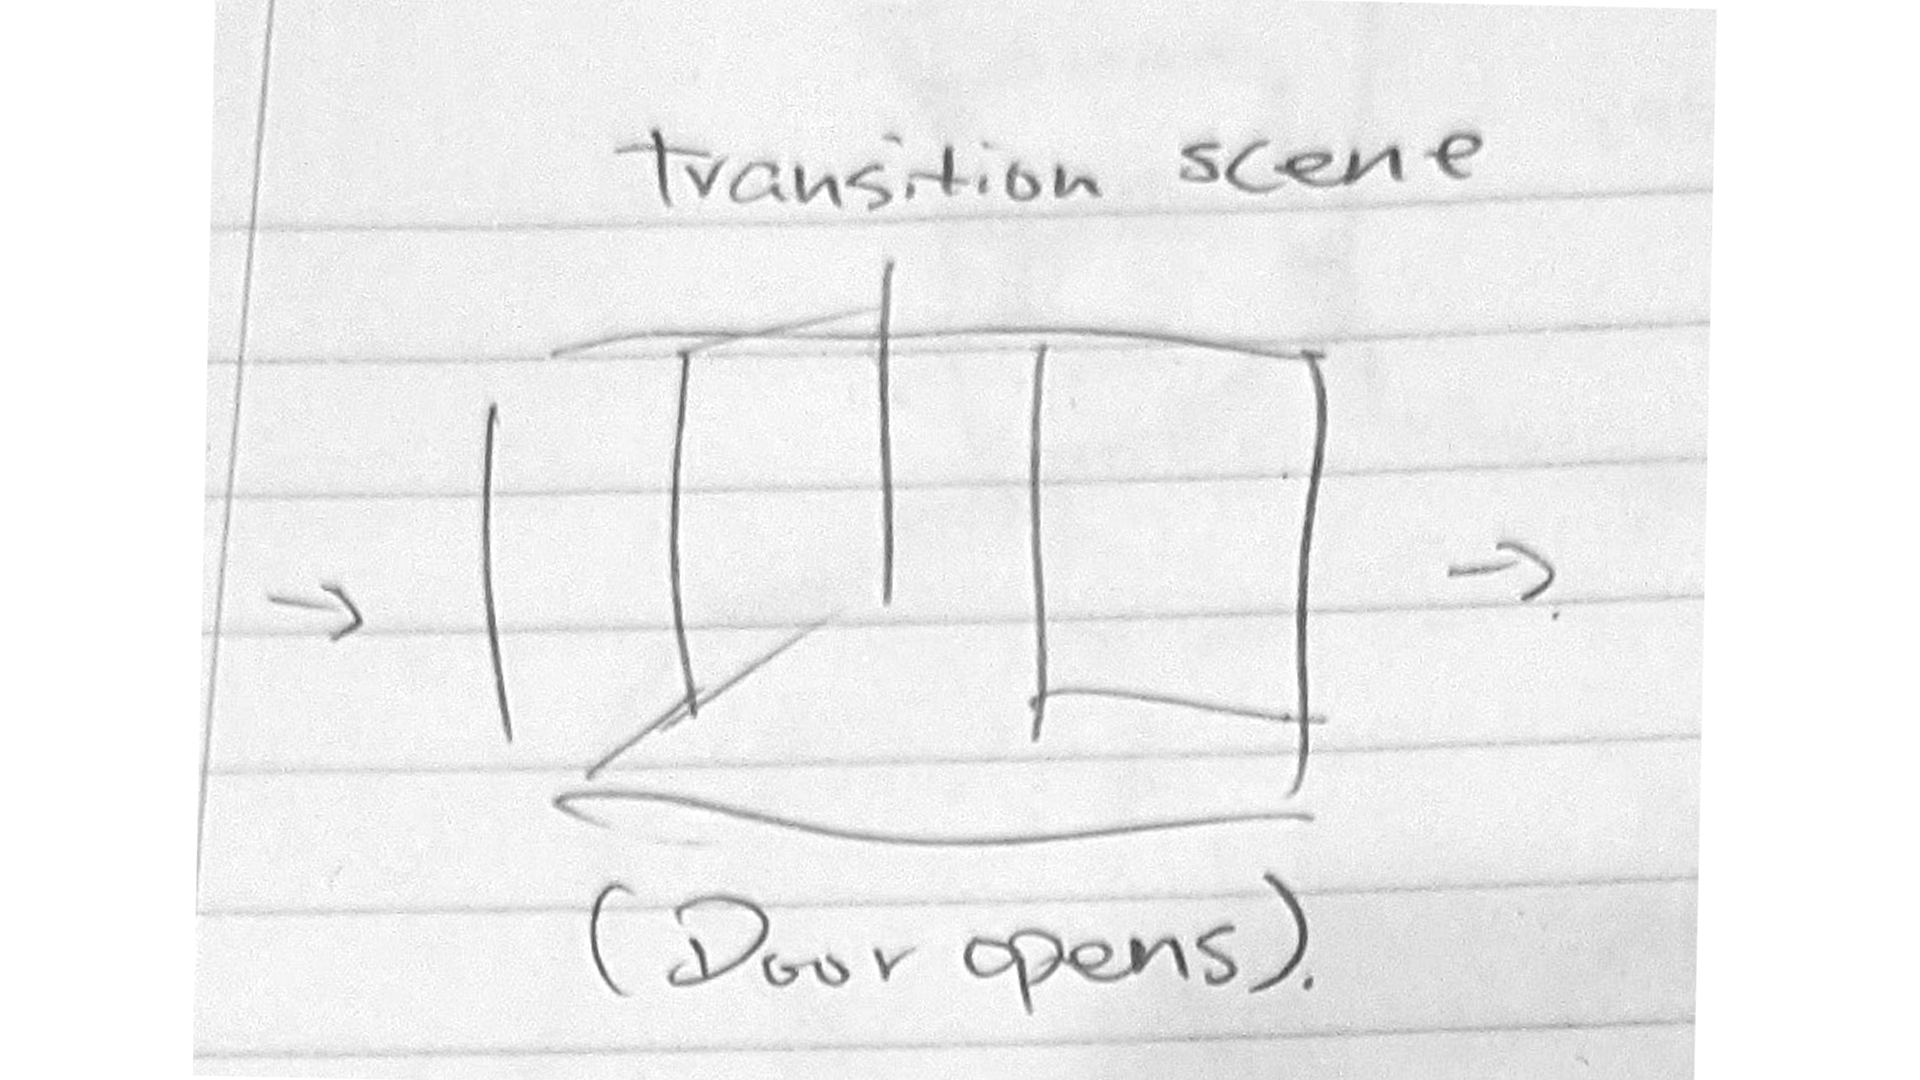 transition scene
→ →
(Door opens).